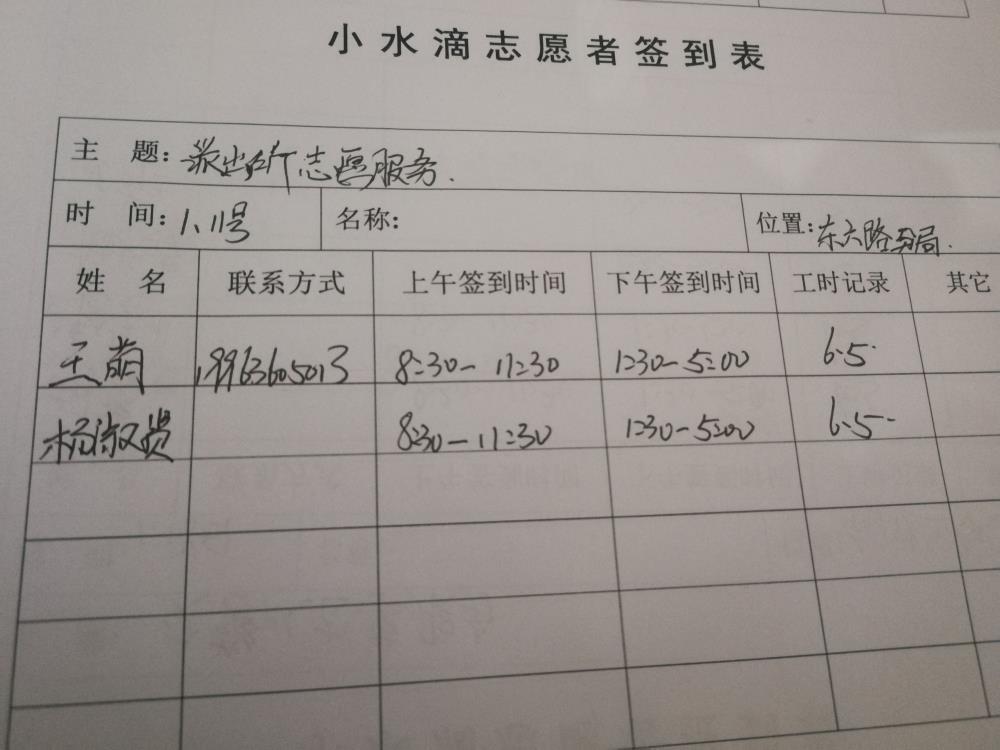 小水滴志愿者签到表
主 题: 派出所志愿服务.
时 间: 1、11号 名称: 位置: 东六路分局.
姓 名 联系方式 上午签到时间 下午签到时间 工时记录 其它
王萌 19963605013 8:30-11:30 1:30-5:00 6.5.
杨淑贵 8:30-11:30 1:30-5:00 6.5.